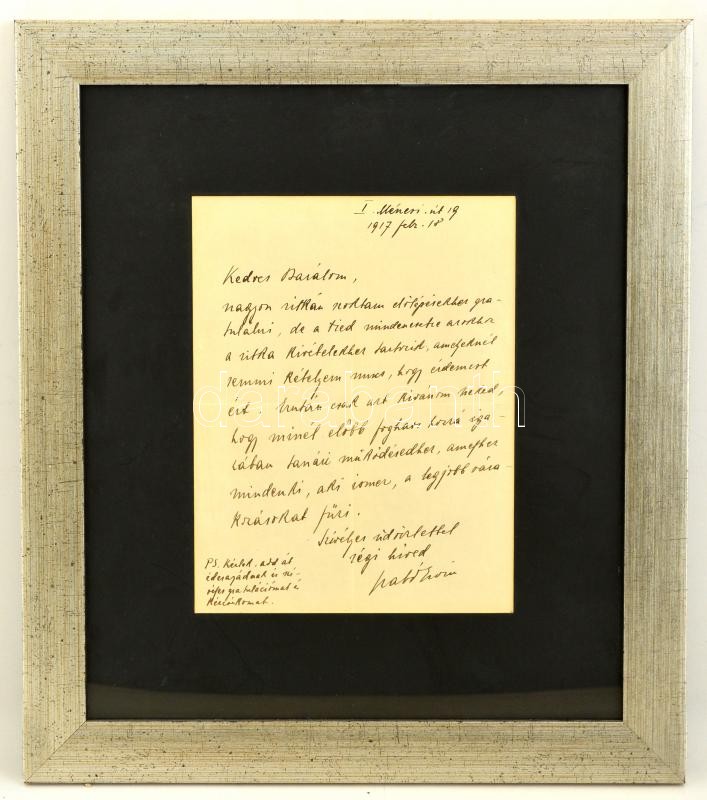 I. Ménesi-út 19
1917 febr. 18
Kedves Barátom,
nagyon ritkán szoktam előlépésekhez gra-
tulálni, de a tied mindenesetre azokhoz
a ritka kivételekhez tartozik, amelyeknél
semmi kételyem nincs, hogy érdemest
ért. Ezután csak azt kívánom neked,
hogy minél előbb foghass hozzá iga-
zában tanári működésedhez, amelyhez
mindenki, aki ismer, a legjobb vára-
kozásokat fűzi.
Szivélyes üdvözlettel
régi hived
Szabó Ervin
PS. Kérlek, add át
édesapádnak is szi-
véges gratulációmat és
kézcsókomat.
darabanth